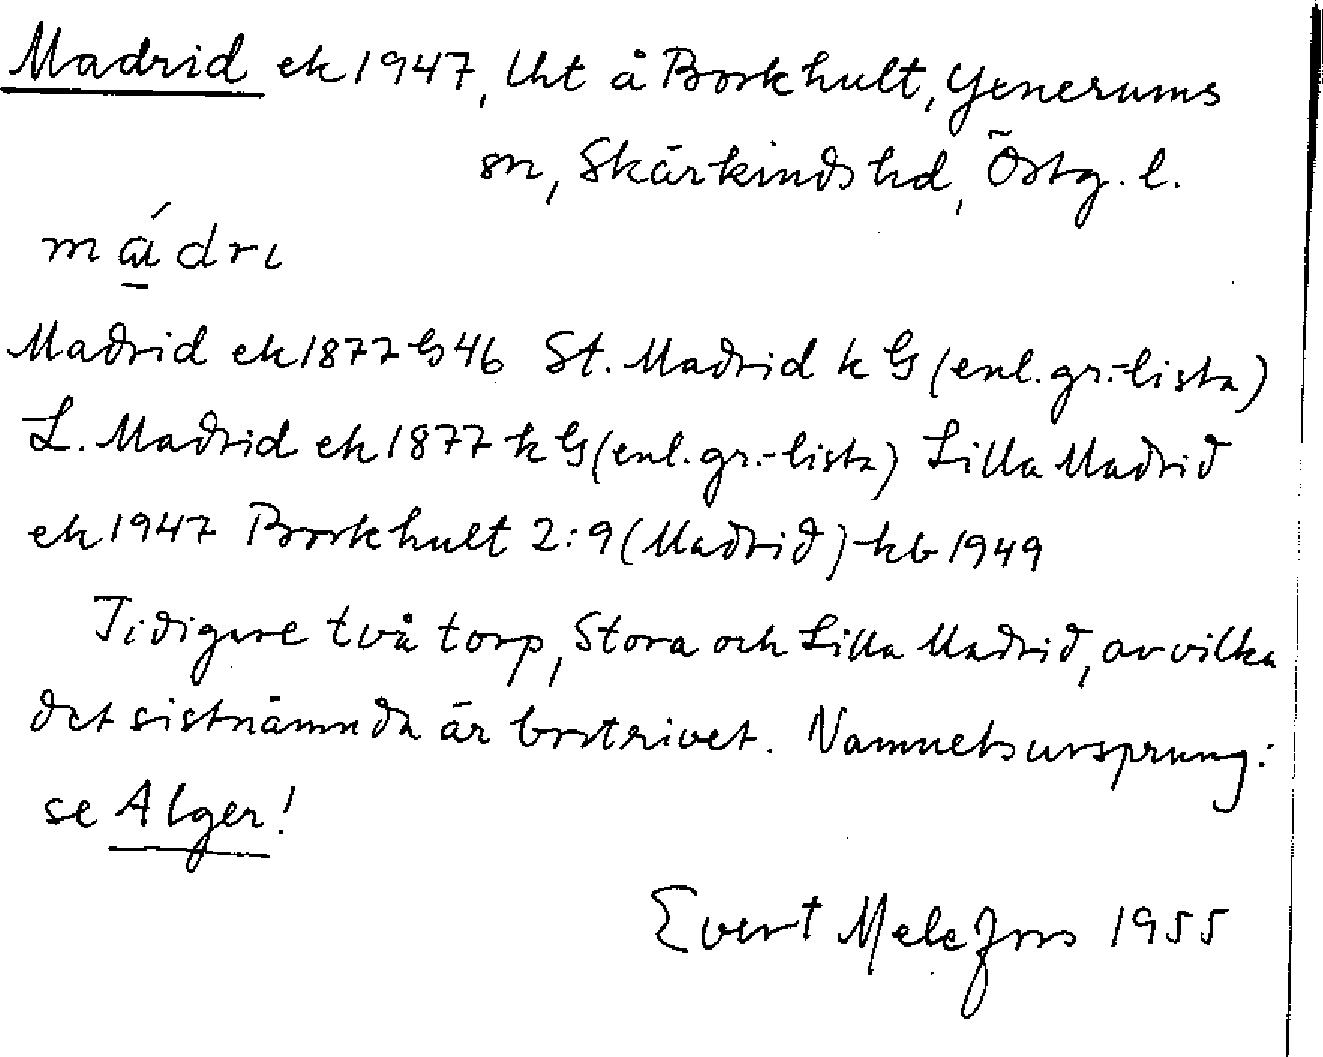 Madrid ek 1947, lht å Borkhult, Yxnerums
sn, Skärkinds hd, Östg. l.
mádrɩ
Madrid ek 1877 G 46 St. Madrid k G (enl. gr.-lista)
L. Madrid ek 1877 k G (enl. gr.-lista) Lilla Madrid
ek 1947 Borkhult 2:9 (Madrid) kb 1949
Tidigare två torp, Stora och Lilla Madrid, av vilka
det sistnämnda är bortrivet. Namnets ursprung:
se Alger!
Evert Melefors 1955